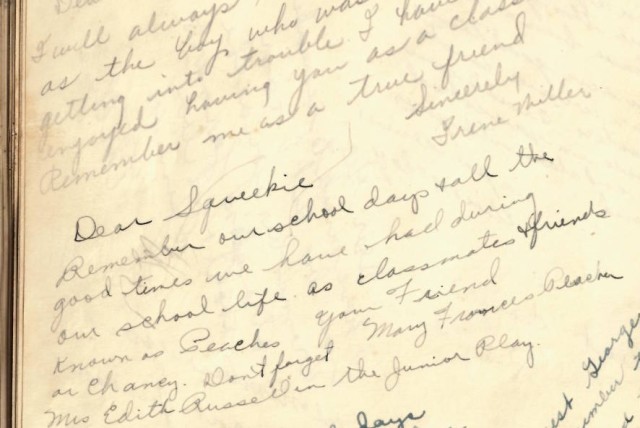 Dear
I will always
as the boy who was
getting into trouble I have
enjoyed having you as a class
Remember me as a true friend
Sincerely
Irene Miller
Dear Squeekie
Remember our school days & all the
good times we have had during
our school life as classmates & friends
Your Friend
Known as Peaches Mary Frances Peacher
or Chancy. Don't forget
Mrs Edith Russell in the Junior Play.
days
est George